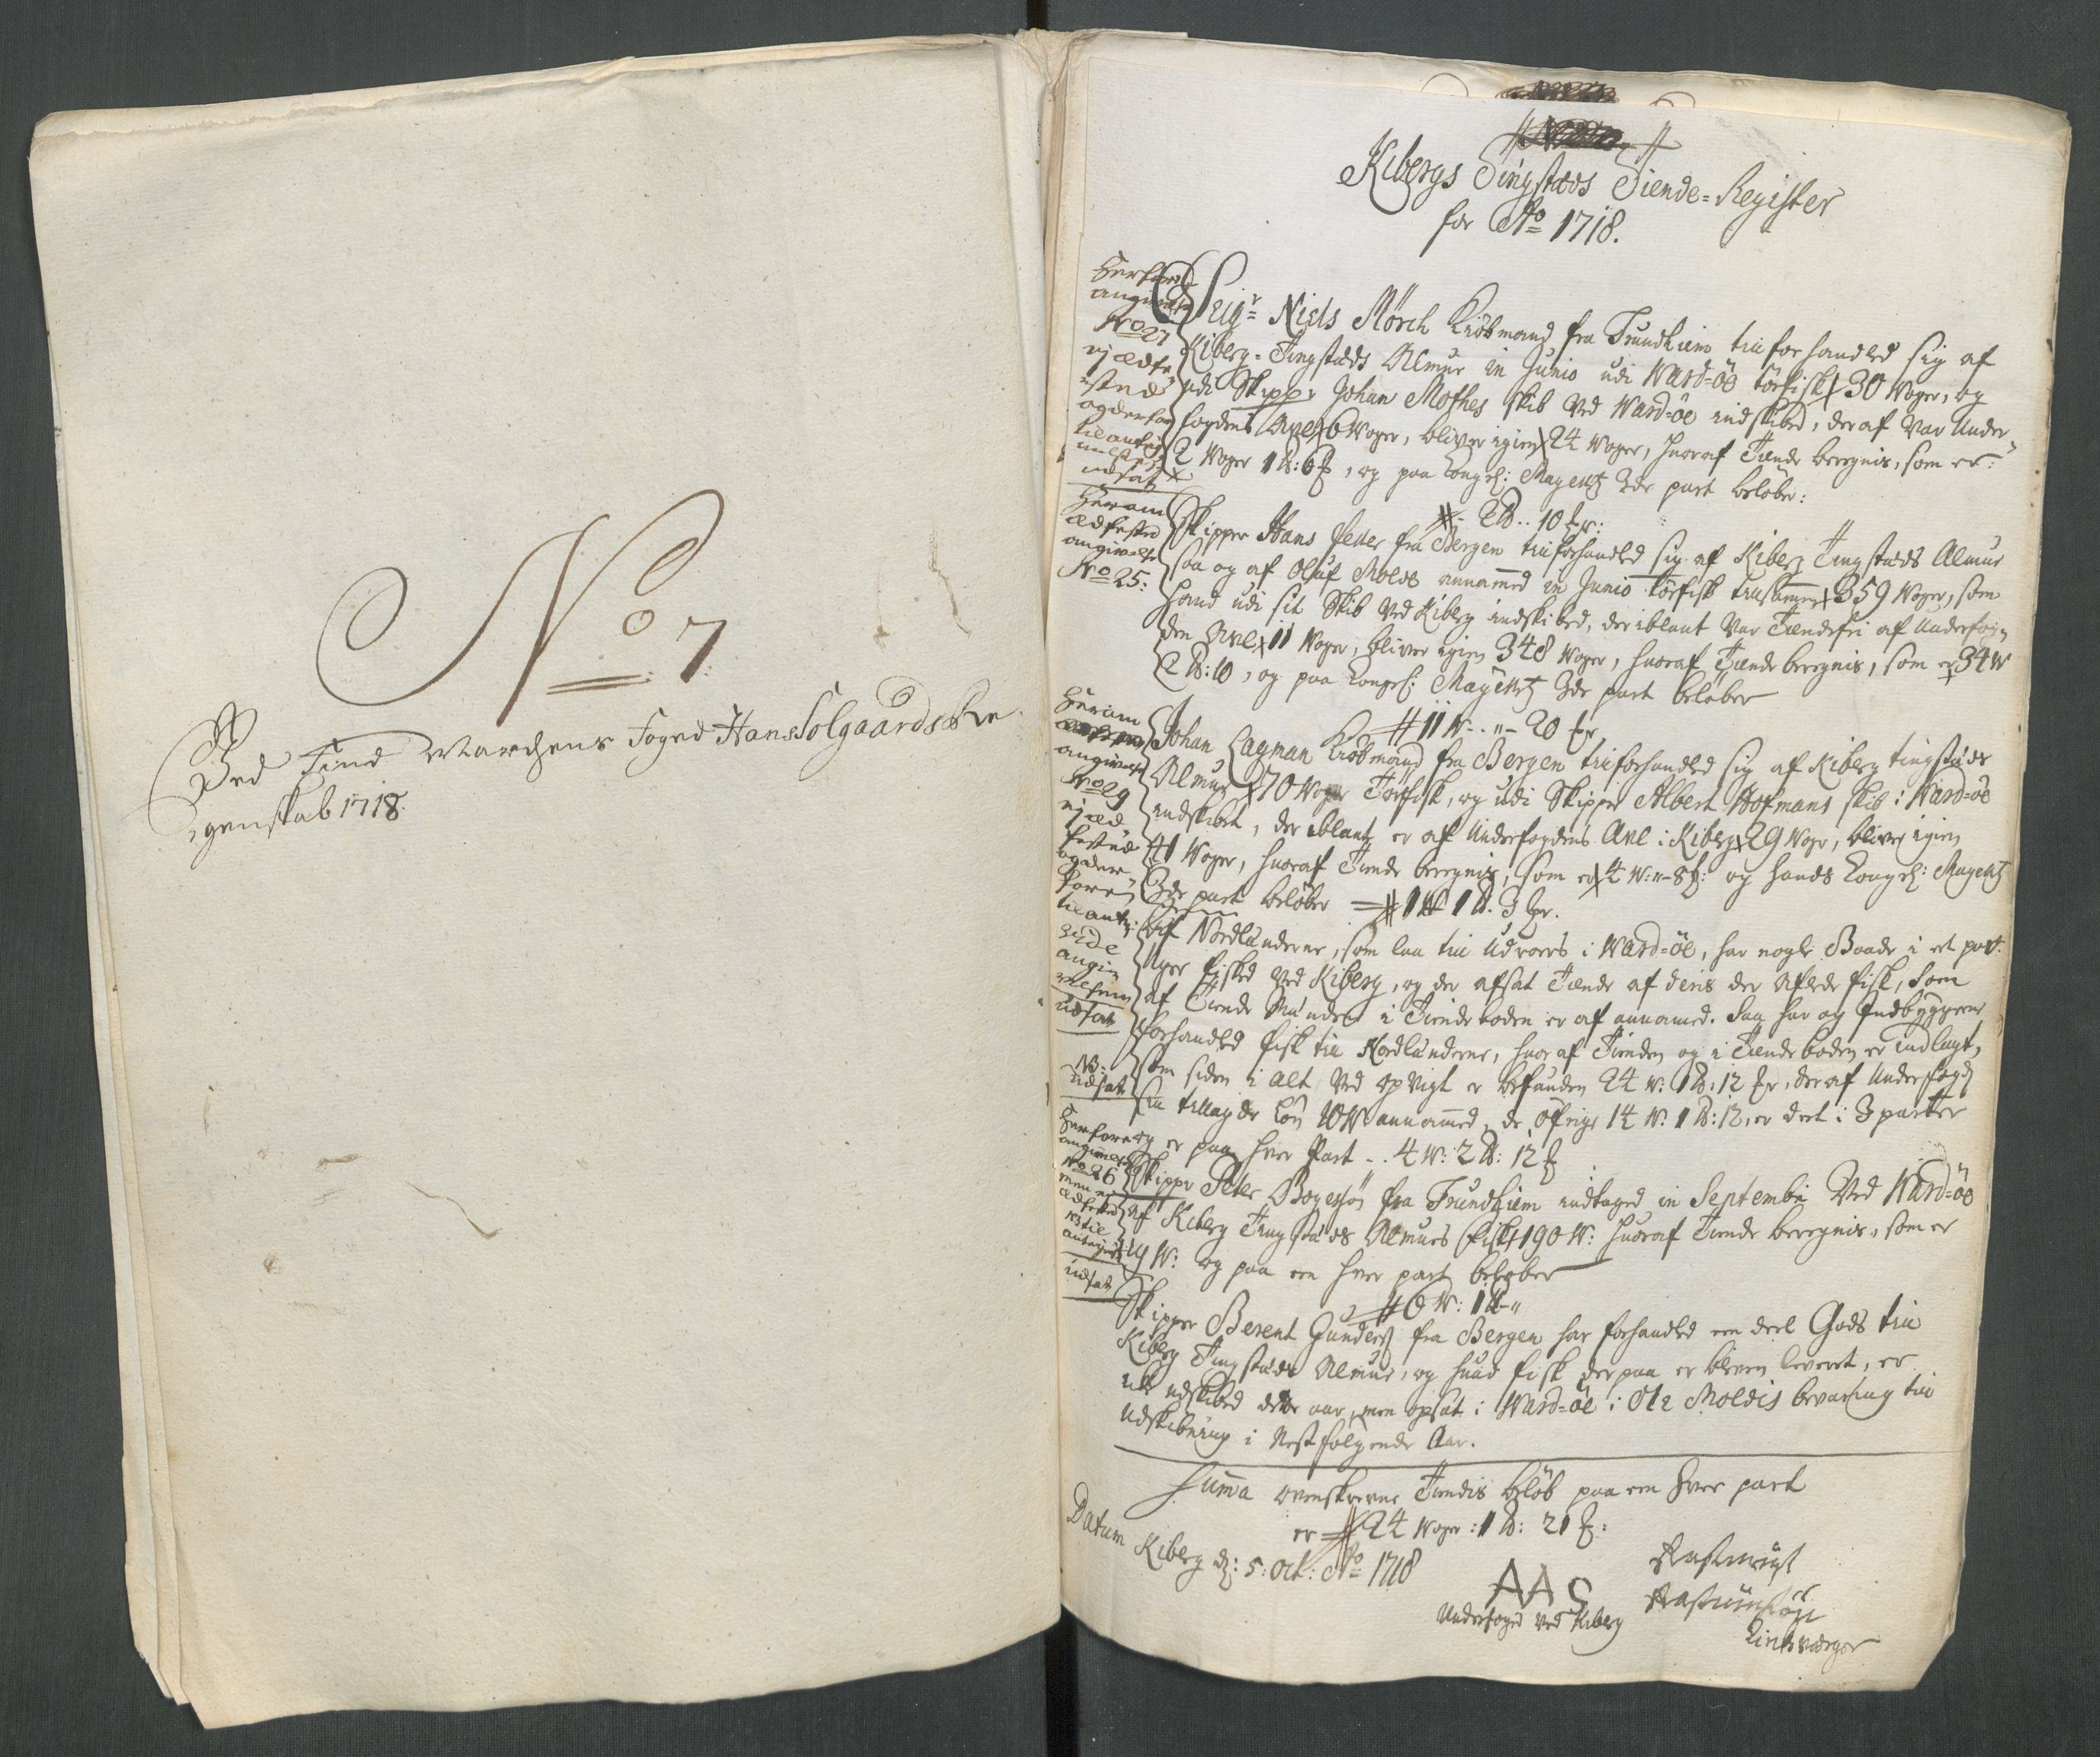 No 7.
Ved Find Marchens Foged Hans Solgaards Re-
genskab 1718.
Kibergs Tingstæds Tiende-Register
for Ao 1718.
Herfore
angivelse
No 27
ej ædfe
sted
og derfor
til anteg
udsat
Seigr Niels Mörch Kiöbmand fra Trundhiem tilforhandled sig af
Kiberg-Tingstæds Almue in Junio udi Ward-öe törfisk 30 Woger, og
udi Skipper Johan Mothes skib Ved Ward-öe indskibed, deraf Var Under-
fogdens Avel 6 Woger, bliver igien 24 Woger, huoraf Tiende beregnis, som er:
2 Woger 1 B: 6 , og paa Kongel: Mayentz 3de part beløber:
2 B.. 10
Herom
ædfested
angivelse
No 25:
Skipper Hans Peter fra Bergen tilforhandled sig af Kiberg Tingstæds Almue
saa og af Oluf Molds annammed in Junio törfisk tilsammen 359 Woger, som
hand udi sit Skib Ved Kiberg indskibed, deriblant Var Tiendefri af Underfog-
den Avel 11 Woger, bliver igien 348 Woger, huoraf Tiende beregnis, som er 34 W
2 B: 10, og paa Kongel: Mayentz 3de part beløber
11 W.. 20
Herom
angivelse
No 29
ej æd
fested
og der
fore
til anteg:
udsat
Johan Lagman Kiöbmand fra Bergen tilforhandled sig af Kiberg tingstæds
Almue 70 Woger Törfisk, og udi Skipper Albert Hofmans skib i Ward-öe
indskibet, der iblant er af Underfogdens Avl i Kiberg 29 Woger, bliver igien
41 Woger, huoraf Tiende beregnis, som er 4 W: 8 : og hands Kongel: Mayentz
3de part beløber 1 W 1 B. 3
Af Nordlænderne, som laa til Udroers i Ward-öe, har nogle Baade i et par
Uger fisked Ved Kiberg, og der afsat Tiende af deris der aflede fisk, som
af Tiende Manden i Tiendeboden er af annamed. Saa har og Indbyggerne
forhandled fisk til Nordlænderne, huor af Tienden og i Tiendeboden er indlagt,
NB:
udsat
som siden i alt Ved opvigt er befunden 24 W: 1 B: 12 , deraf Underfogd
sin tillagde Løn 10 W annammed, de öfrige 14 W: 1 B: 12, er deelt i 3 parter
og er paa hver Part .. 4 W: 2 B: 12
Herfore
angivelse
No 26
men ei
ædfested
NB til
udsat
Skipper Peter Boyesön fra Trundhiem indtaged in Septembr Ved Ward-öe
af Kiberg Tingstæds Almues fisk 190 W: huoraf Tiende beregnis, som er
19 W: og paa en hver part beløber
6 W: 1 B
Skipper Berent Gunders fra Bergen har forhandled een deel Gods til
Kiberg Tingstæds Almue, og huad fisk derpaa er bleven leveret, er
icke udskibed dette aar, men opsat i Ward-öe i Ole Moldis bevaring til
Udskibning i Nestfølgende Aar.
Summa ovenskrevne Tiendis belöb paa en hver part
er 24 Woger: 1 B: 21 :
Datum Kiberg d: 5: Oct: Ao 1718
AAS
Underfoged Ved Kiberg